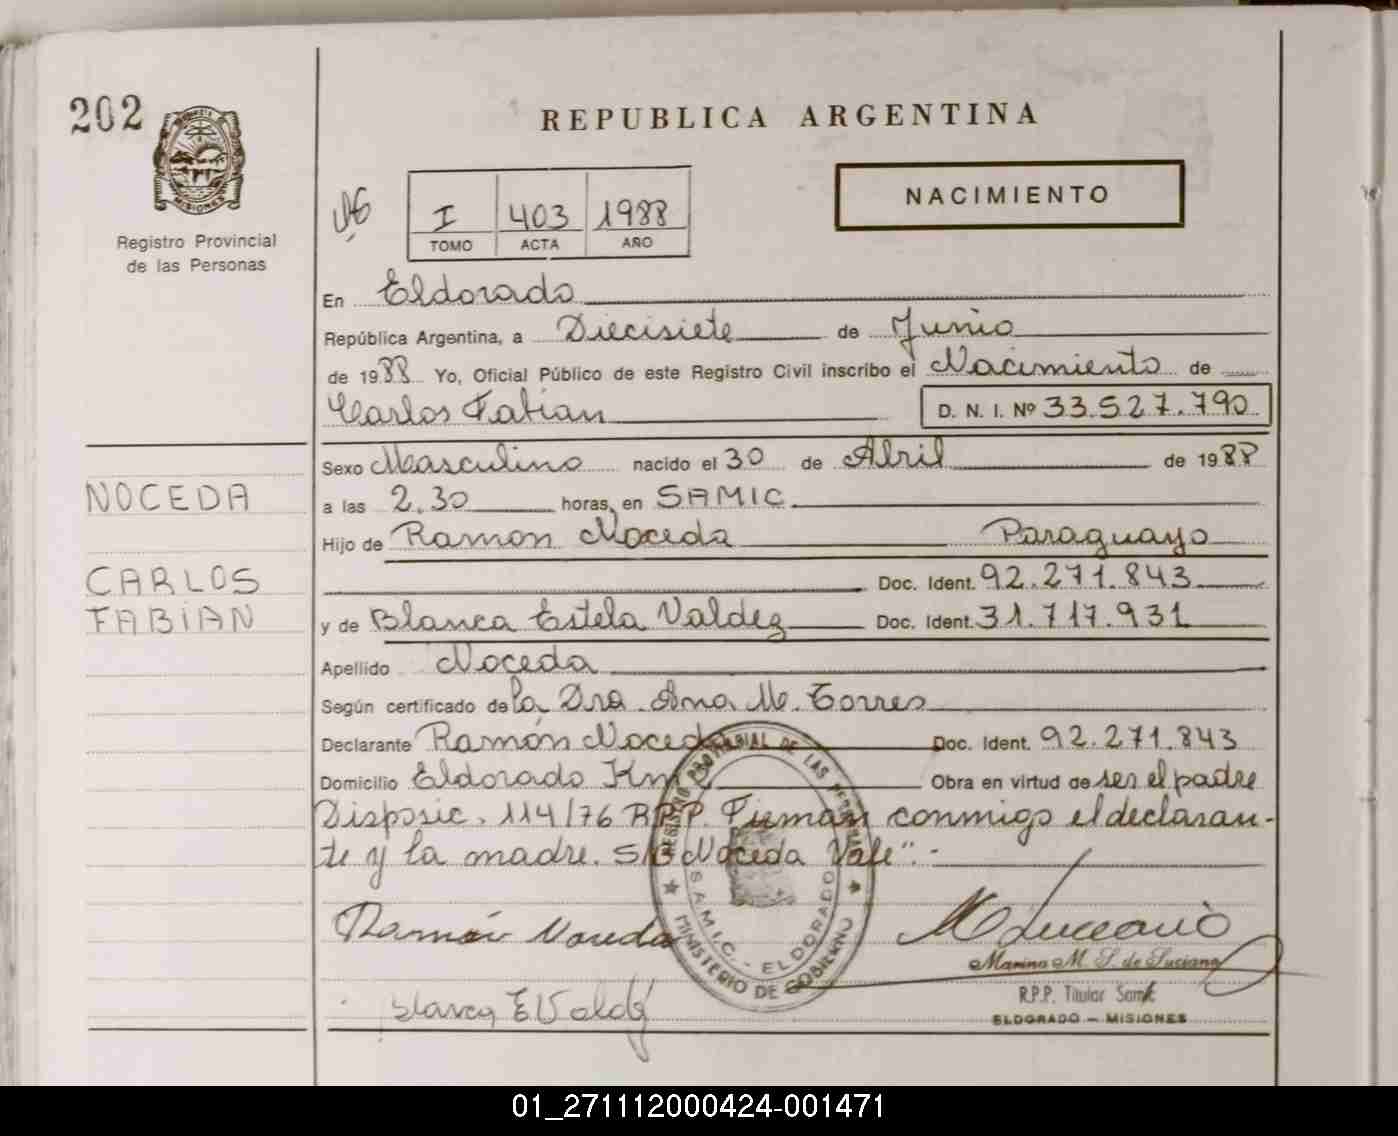 202
REPUBLICA ARGENTINA
MISIONES
Registro Provincial
de las Personas
I 403 1988
TOMO ACTA AÑO
NACIMIENTO
En Eldorado
República Argentina, a Diecisiete de Junio
de 1988 Yo, Oficial Público de este Registro Civil inscribo el Nacimiento de
Carlos Fabian D. N. I. Nº 33.527.790
Sexo Masculino nacido el 30 de Abril de 1988
NOCEDA
a las 2.30 horas, en SAMIC
Hijo de Ramon Noceda Paraguayo
CARLOS
Doc. Ident. 92.271.843
FABIAN
y de Blanca Estela Valdez Doc. Ident. 31.717.931
Apellido Noceda
Según certificado de la Dra. Ana M. Torres
Declarante Ramón Noceda Doc. Ident. 92.271.843
Domicilio Eldorado Km Obra en virtud de ser el padre
Disposic. 114/76 R.P.P. Firman conmigo el declaran-
te y la madre. S/B Noceda Vale".-
REGISTRO PROVINCIAL DE LAS PERSONAS
S.A.M.I.C. - ELDORADO
MINISTERIO DE GOBIERNO
Ramón Noceda
Marina M. S. de Luciano
R.P.P. Titular Samic
ELDORADO - MISIONES
Blanca E Valdez
01_271112000424-001471